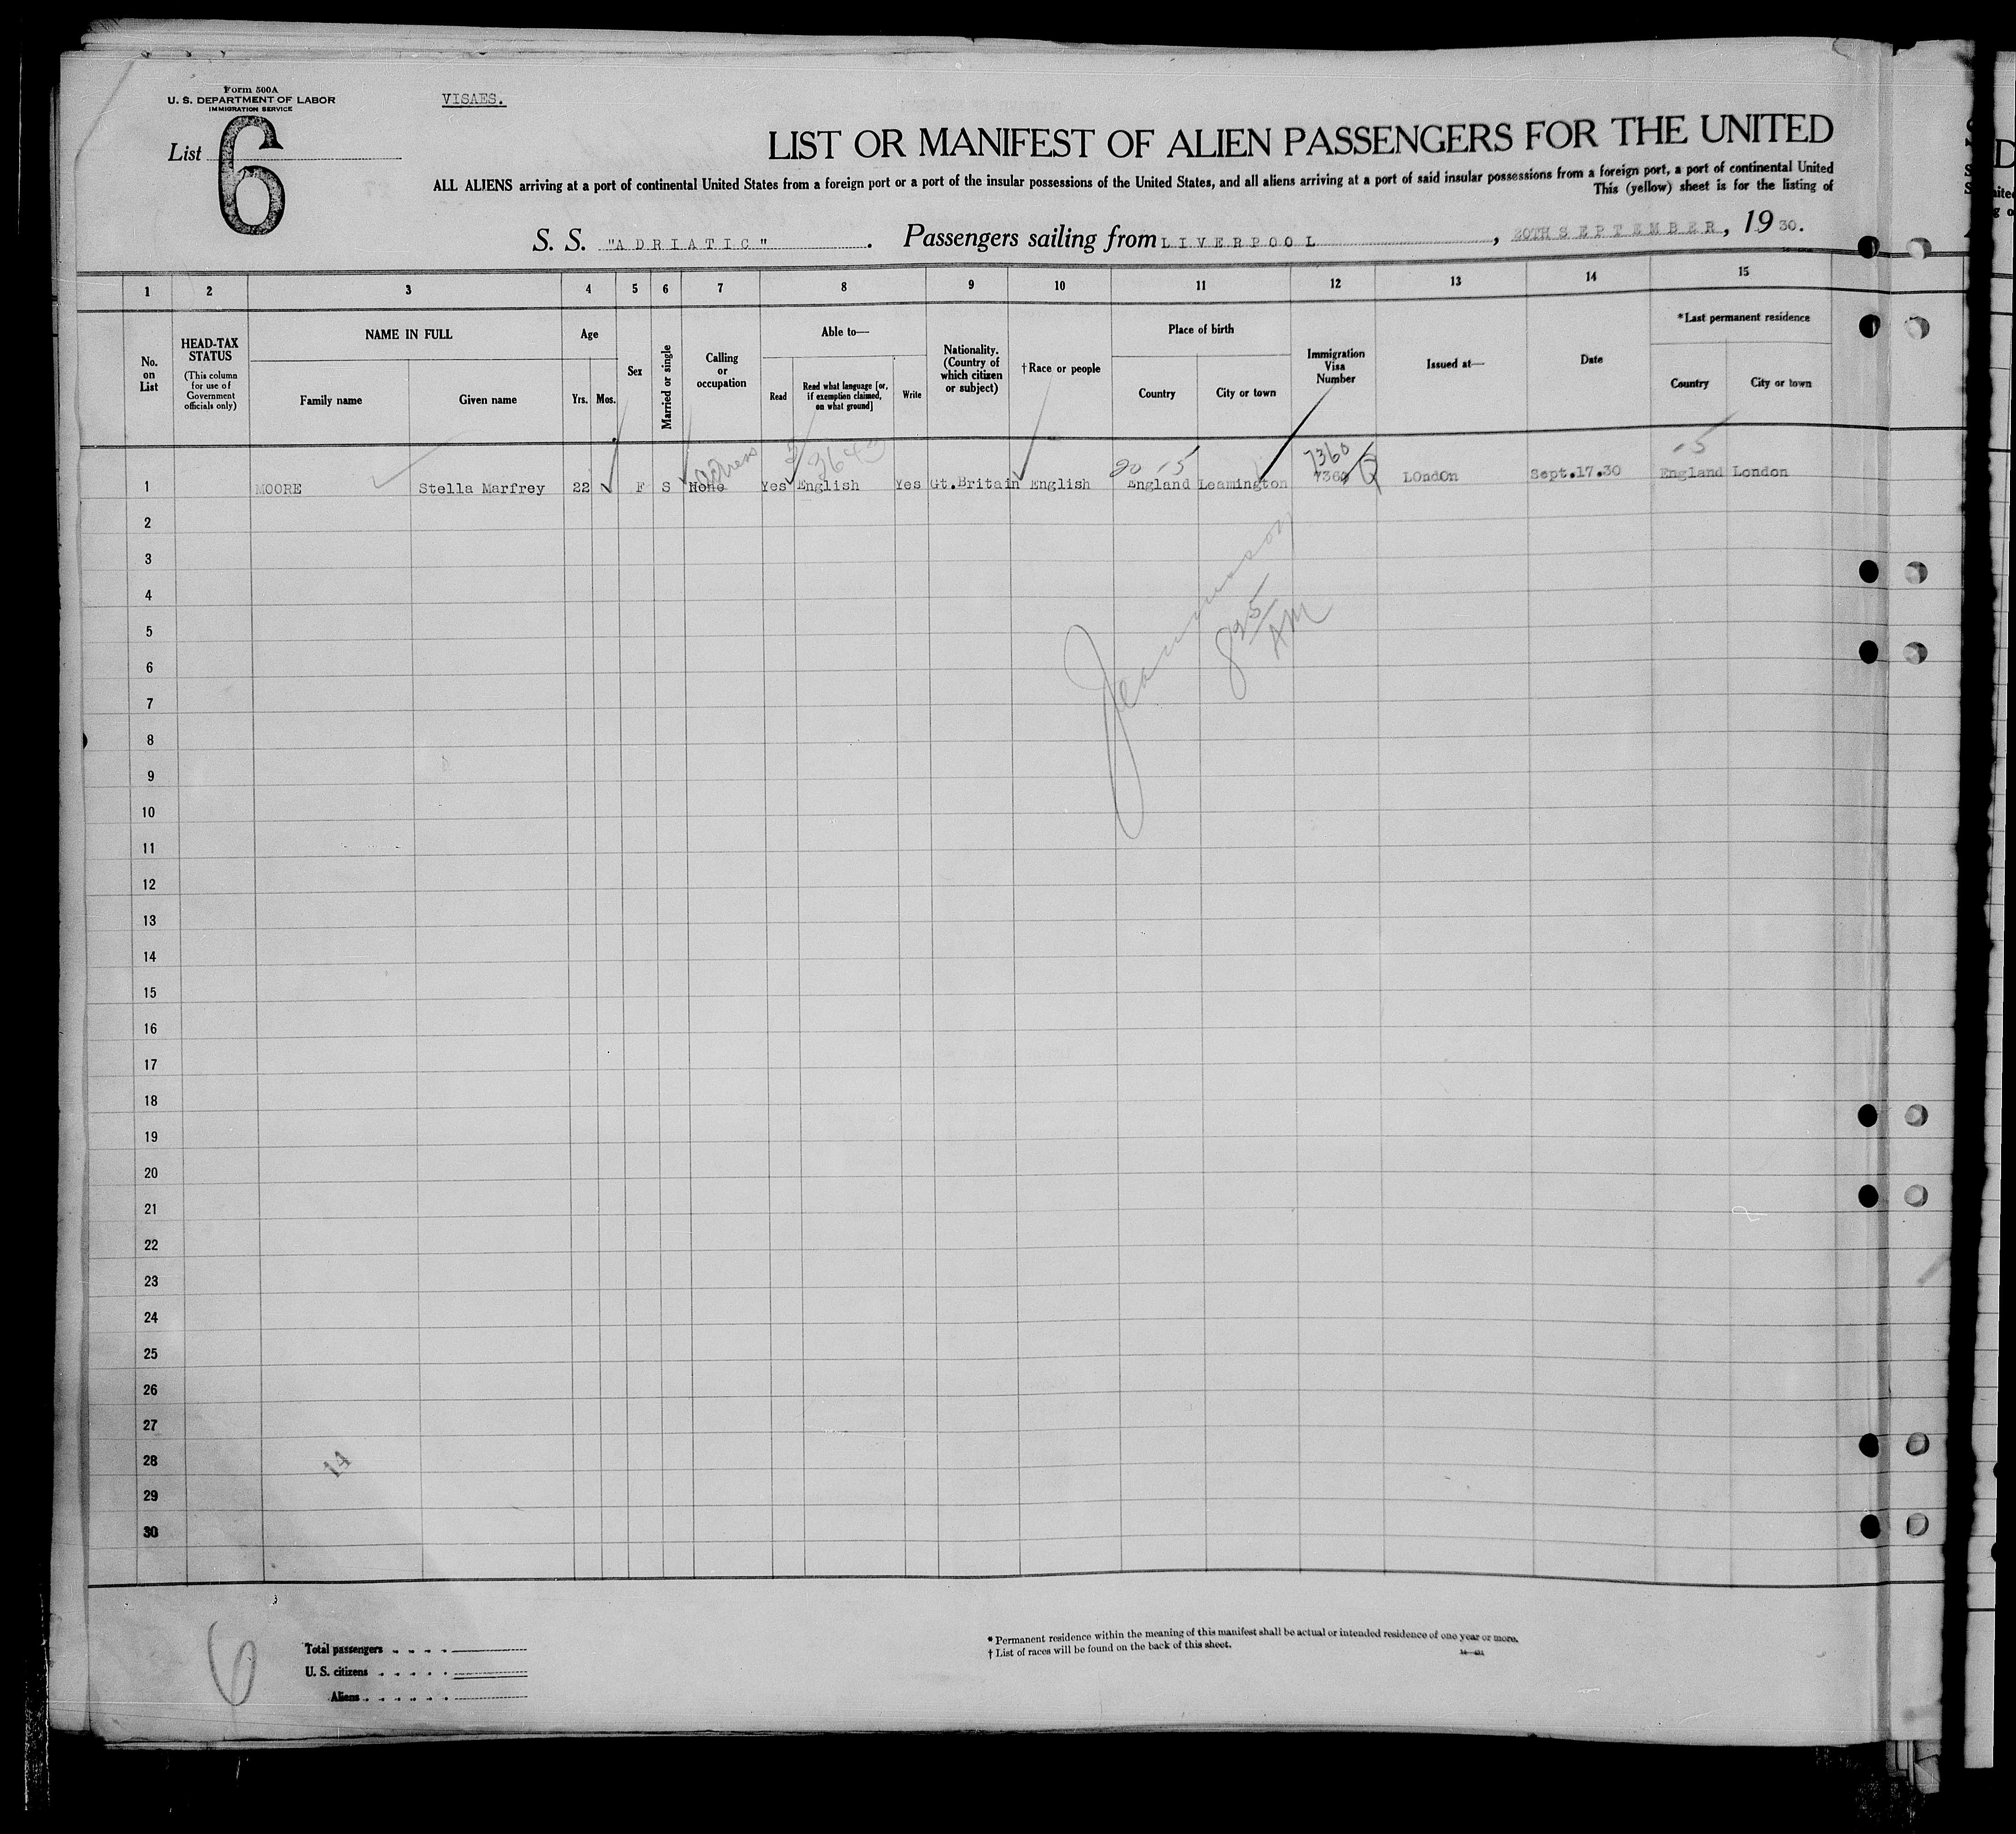 Form 500A
U. S. DEPARTMENT OF LABOR
IMMIGRATION SERVICE
VISAES.
List 6
LIST OR MANIFEST OF ALIEN PASSENGERS FOR THE UNITED
ALL ALIENS arriving at a port of continental United States from a foreign port or a port of the insular possessions of the United States, and all aliens arriving at a port of said insular possessions from a foreign port, a port of continental United
This (yellow) sheet is for the listing of
S. S. "ADRIATIC". Passengers sailing from LIVERPOOL, 20TH SEPTEMBER, 1930.
1 2 3 4 5 6 7 8 9 10 11 12 13 14 15
No. on List
HEAD-TAX STATUS
(This column for use of Government officials only)
NAME IN FULL
Family name Given name
Age
Yrs. Mos.
Sex
Married or single
Calling or occupation
Able to—
Read Read what language [or, if exemption claimed, on what ground] Write
Nationality. (Country of which citizen or subject)
†Race or people
Place of birth
Country City or town
Immigration Visa Number
Issued at—
Date
*Last permanent residence
Country City or town
Actress 20 15 7360 15
1 MOORE Stella Marfrey 22 F S None Yes English Yes Gt.Britain English England Leamington LOndOn Sept.17.30 England London
2
3
4
5
6
7
8
9
10
11
12
13
14
15
16
17
18
19
20
21
22
23
24
25
26
27
28
29
30
825 AM
14
6
Total passengers
U. S. citizens
Aliens
* Permanent residence within the meaning of this manifest shall be actual or intended residence of one year or more.
† List of races will be found on the back of this sheet.